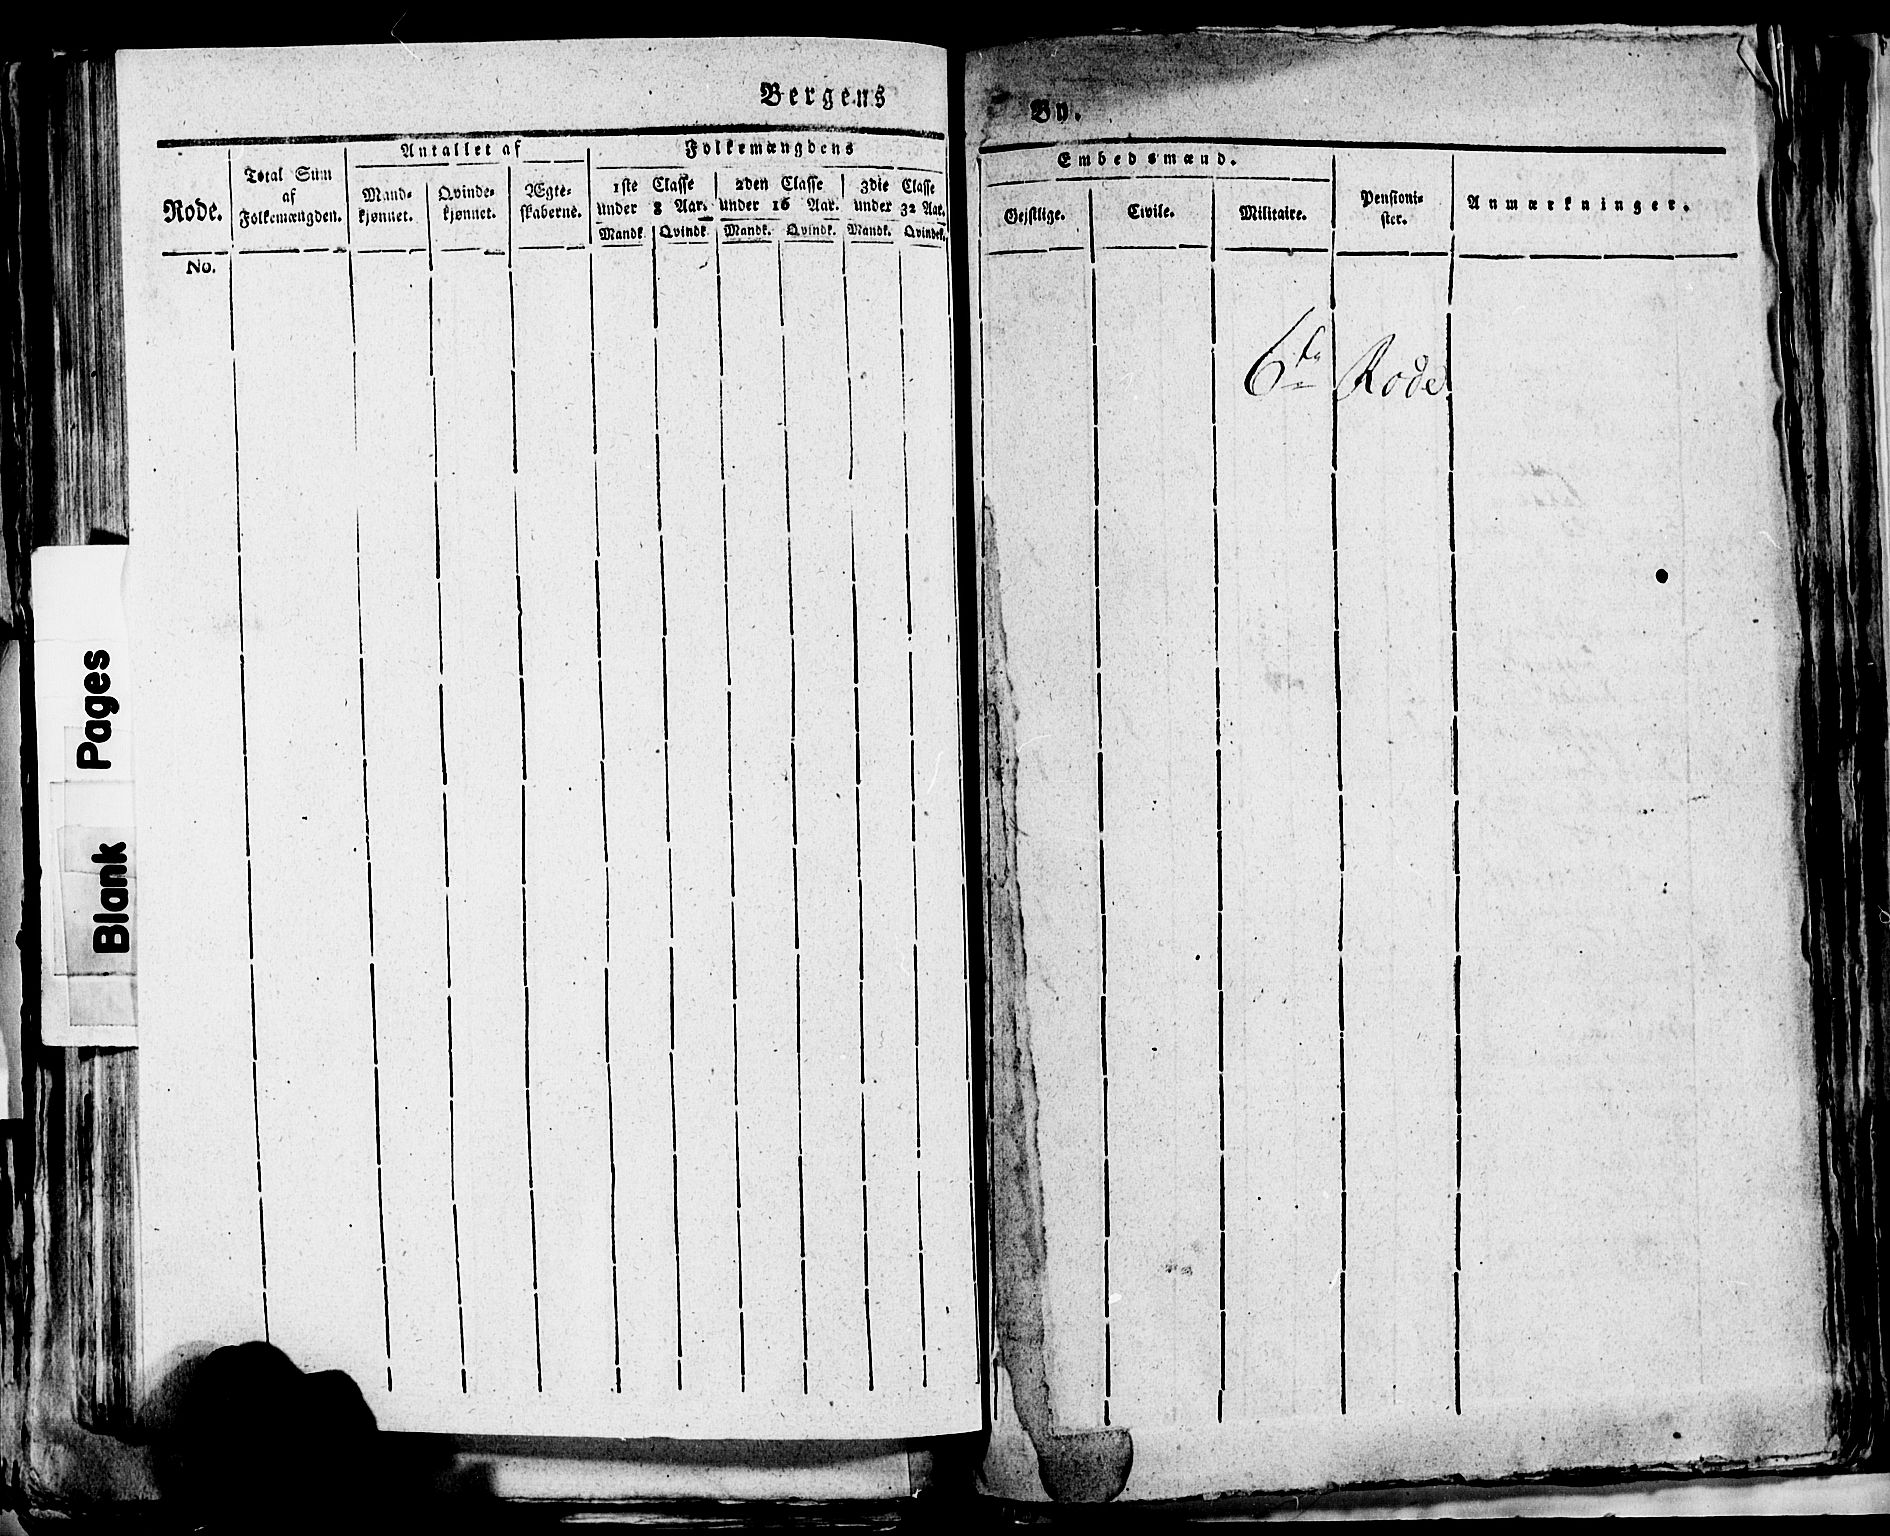 Bergens
Rode.
Total Sum
af
Folkemængden.
Antallet af
Mand-
kjønnet.
Qvinde-
kjønnet.
Ægte-
skaberne.
Folkemængdens
1ste Classe
under 8 Aar.
2den Classe
under 16 Aar.
3die Classe
under 32 Aar.
Mandk.
Qvindk.
Mandk.
Qvindk.
Mandk.
Qvindek.
No.
Blank Pages
By.
Embedsmænd.
Gejstlige.
Civile.
Militaire.
Pensioni-
ster.
Anmærkninger.
6te Rode